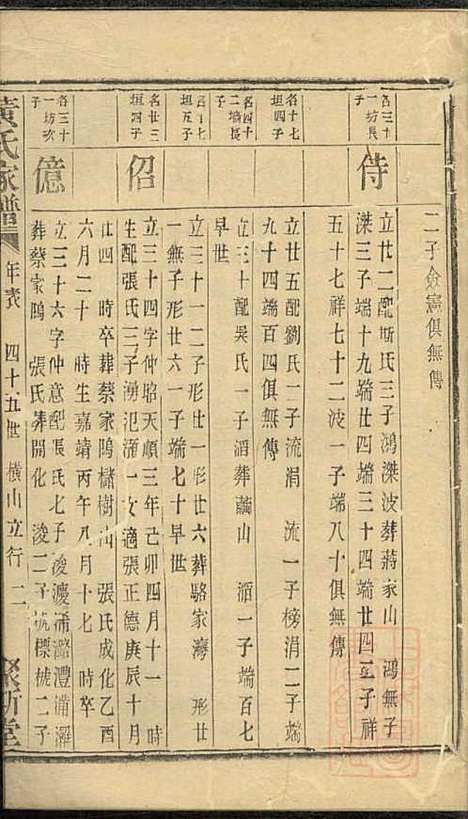 二子僉憲俱無傳
名三十一坊長子
侍
立廿二配斯氏三子鴻滐波葬蔣家山 鴻無子
滐三子端十九端廿四端三十四端廿四二子祥
五十七祥七十二波一子端八十俱無傳
名十七垣四子
立廿五配劉氏二子流涓 流一子榜涓二子端
九十四端百四俱無傳
名四十二墻長子
立三十配吳氏一子滔葬繭山 滔一子端百七
早世
名十七垣五子
立三十一二子形廿一形廿六葬駱家灣 形廿
一無子形廿六一子端七十早世
名廿三垣四子
佋
立三十四字仲昭天順三年己卯四月十一 時
生配張氏三子湧汜溍一女適張正德庚辰十月
廿四 時卒葬蔡家塢櫧樹山 張氏成化乙酉
六月二十 時生嘉靖丙午八月十七 時卒
名三十一坊次子
億
立三十六字仲意配張氏七子浚濅浦潞澧浦濯
葬蔡家塢 張氏葬開化 浚二子梡標槭二子
黃氏家譜
年表 四十五世 橫山立行 二
聚斯堂